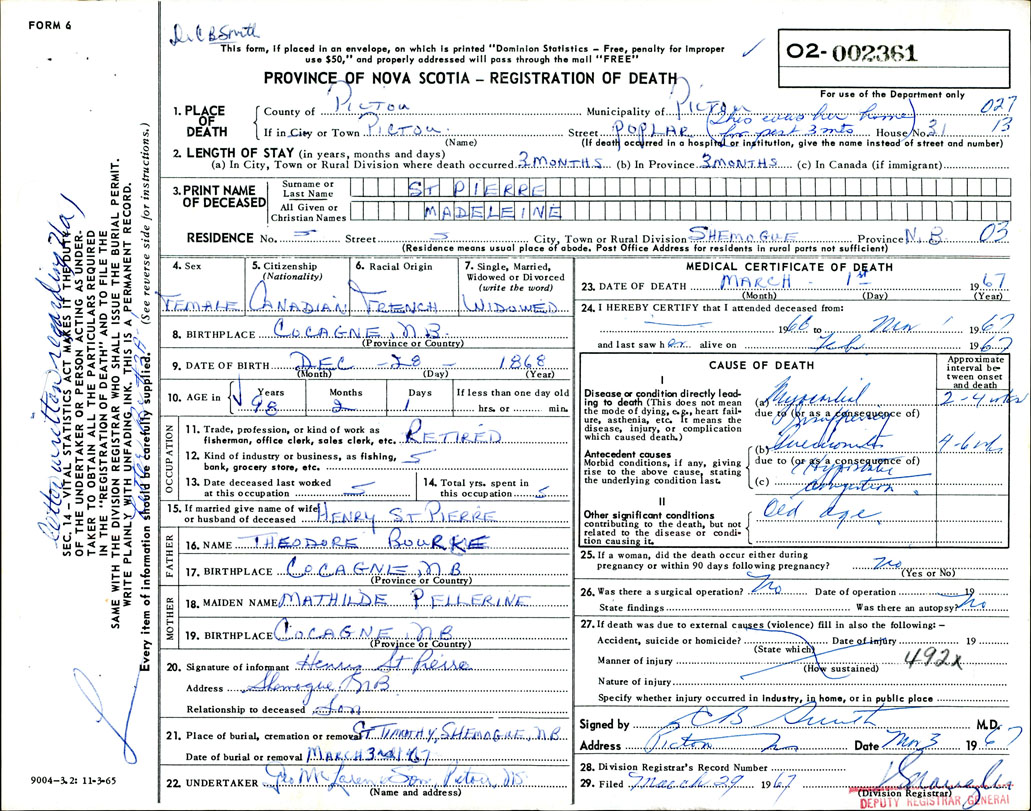 FORM 6
Dr C B Smith
This form, if placed in an envelope, on which is printed "Dominion Statistics – Free, penalty for improper
use $50," and properly addressed will pass through the mail "FREE"
02-002361
For use of the Department only
PROVINCE OF NOVA SCOTIA – REGISTRATION OF DEATH
027
13
1. PLACE OF DEATH
County of PICTOU Municipality of PICTOU
(This was her home for past 3 mts)
If in City or Town PICTOU Street POPLAR House No. 31
(Name) (If death occurred in a hospital or institution, give the name instead of street and number)
2. LENGTH OF STAY (in years, months and days)
(a) In City, Town or Rural Division where death occurred 3 MONTHS (b) In Province 3 MONTHS (c) In Canada (if immigrant)
3. PRINT NAME OF DECEASED
Surname or Last Name ST PIERRE
All Given or Christian Names MADELEINE
RESIDENCE No. Street City, Town or Rural Division SHEMOGUE Province N.B 03
(Residence means usual place of abode. Post Office Address for residents in rural parts not sufficient)
4. Sex
FEMALE
5. Citizenship (Nationality)
CANADIAN
6. Racial Origin
FRENCH
7. Single, Married, Widowed or Divorced (write the word)
WIDOWED
8. BIRTHPLACE COCAGNE, N.B.
(Province or Country)
9. DATE OF BIRTH DEC – 28 – 1868
(Month) (Day) (Year)
10. AGE in
Years Months Days If less than one day old
98 2 1 hrs. or min.
OCCUPATION
11. Trade, profession, or kind of work as fisherman, office clerk, sales clerk, etc. RETIRED
12. Kind of industry or business, as fishing, bank, grocery store, etc.
13. Date deceased last worked at this occupation
14. Total yrs. spent in this occupation
15. If married give name of wife or husband of deceased HENRY ST PIERRE
FATHER
16. NAME THEODORE BOURKE
17. BIRTHPLACE COCAGNE, N.B
(Province or Country)
MOTHER
18. MAIDEN NAME MATHILDE PELLERINE
19. BIRTHPLACE COCAGNE, N.B
(Province or Country)
20. Signature of informant Henry St Pierre
Address Shemogue N.B.
Relationship to deceased Son
21. Place of burial, cremation or removal ST TIMOTHY, SHEMOGUE, N.B
Date of burial or removal MARCH 3rd 1967
22. UNDERTAKER Geo McLaren & Son, Pictou, N.S.
(Name and address)
MEDICAL CERTIFICATE OF DEATH
23. DATE OF DEATH MARCH 1st 1967
(Month) (Day) (Year)
24. I HEREBY CERTIFY that I attended deceased from:
1966 to Mar 1 1967
and last saw her alive on Feb 1967
CAUSE OF DEATH
Approximate interval between onset and death
I
Disease or condition directly leading to death (This does not mean the mode of dying, e.g., heart failure, asthenia, etc. It means the disease, injury, or complication which caused death.)
(a) Myocardial Insufficiency 2-4 wks
due to (or as a consequence of)
Antecedent causes
Morbid conditions, if any, giving rise to the above cause, stating the underlying condition last.
(b) Pneumonitis
due to (or as a consequence of)
(c) (Hypostatic congestion)
II
Other significant conditions contributing to the death, but not related to the disease or condition causing it.
Old age.
25. If a woman, did the death occur either during pregnancy or within 90 days following pregnancy? no
(Yes or No)
26. Was there a surgical operation? No Date of operation 19
State findings Was there an autopsy? No
27. If death was due to external causes (violence) fill in also the following: –
Accident, suicide or homicide? Date of injury 19
(State which)
Manner of injury 492x
(How sustained)
Nature of injury
Specify whether injury occurred in industry, in home, or in public place
Signed by C B Smith M.D.
Address Pictou NS Date Mar 3 1967
28. Division Registrar's Record Number
29. Filed March 29 1967
(Division Registrar)
DEPUTY REGISTRAR GENERAL
SEC. 14 – VITAL STATISTICS ACT MAKES IT THE DUTY
OF THE UNDERTAKER OR PERSON ACTING AS UNDER-
TAKER TO OBTAIN ALL THE PARTICULARS REQUIRED
IN THE "REGISTRATION OF DEATH" AND TO FILE THE
SAME WITH THE DIVISION REGISTRAR WHO SHALL ISSUE THE BURIAL PERMIT.
WRITE PLAINLY WITH UNFADING INK. THIS IS A PERMANENT RECORD.
Every item of information should be carefully supplied. (See reverse side for instructions.)
9004-3.2: 11-3-65